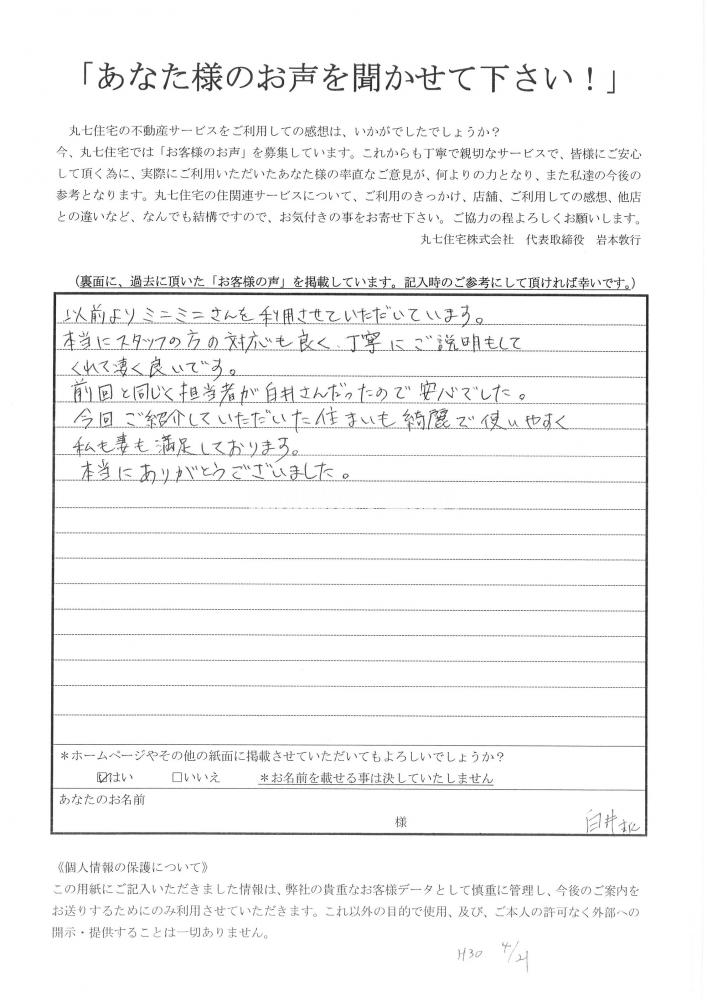 「あなた様のお声を聞かせて下さい！」
丸七住宅の不動産サービスをご利用しての感想は、いかがでしたでしょうか？
今、丸七住宅では「お客様のお声」を募集しています。これからも丁寧で親切なサービスで、皆様にご安心
して頂く為に、実際にご利用いただいたあなた様の率直なご意見が、何よりの力となり、また私達の今後の
参考となります。丸七住宅の住関連サービスについて、ご利用のきっかけ、店舗、ご利用しての感想、他店
との違いなど、なんでも結構ですので、お気付きの事をお寄せ下さい。ご協力の程よろしくお願いします。
丸七住宅株式会社　代表取締役　岩本敦行
（裏面に、過去に頂いた「お客様の声」を掲載しています。記入時のご参考にして頂ければ幸いです。）
以前よりミニミニさんを利用させていただいています。
本当にスタッフの方の対応も良く、丁寧にご説明もして
くれて凄く良いです。
前回と同じく担当者が白井さんだったので安心でした。
今回ご紹介していただいた住まいも綺麗で使いやすく
私も妻も満足しております。
本当にありがとうございました。
＊ホームページやその他の紙面に掲載させていただいてもよろしいでしょうか？
☑はい　□いいえ　＊お名前を載せる事は決していたしません
あなたのお名前
様　白井
《個人情報の保護について》
この用紙にご記入いただきました情報は、弊社の貴重なお客様データとして慎重に管理し、今後のご案内を
お送りするためにのみ利用させていただきます。これ以外の目的で使用、及び、ご本人の許可なく外部への
開示・提供することは一切ありません。
H30 4/21